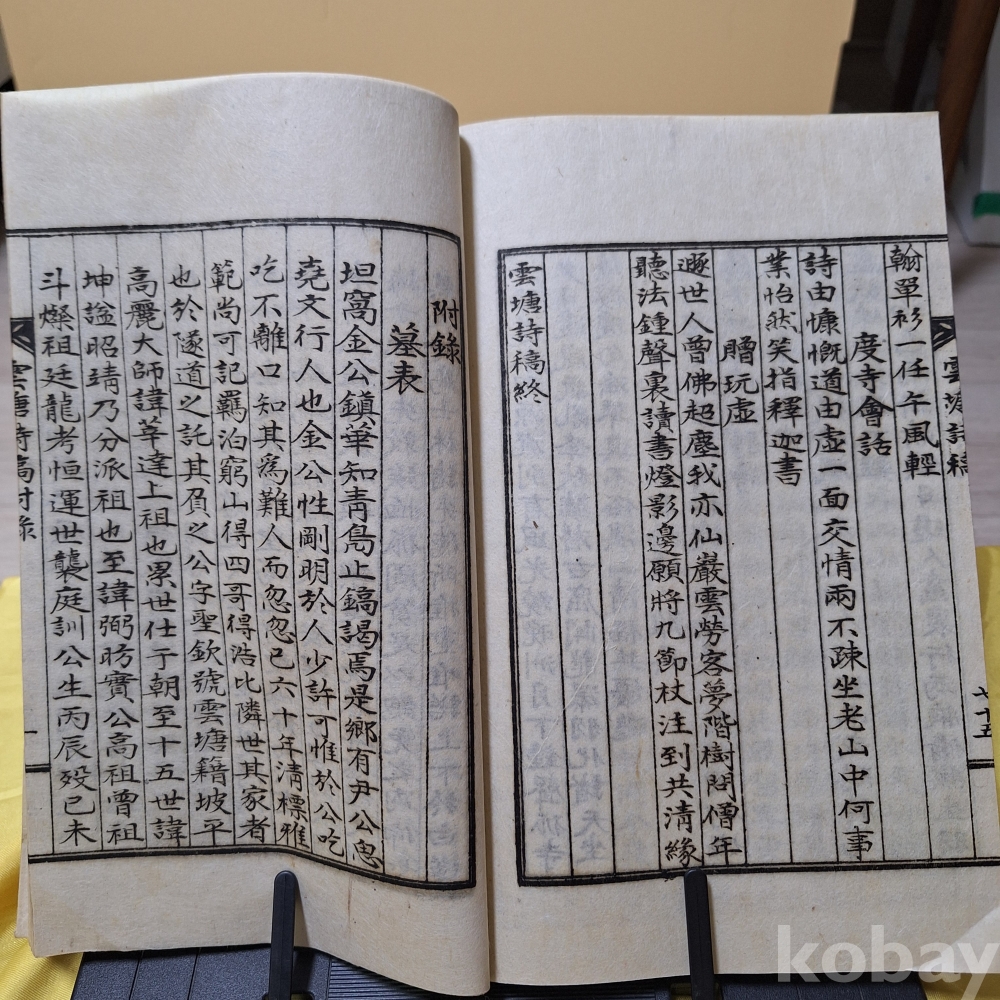 翰單衫一任午風輕
度寺會話
詩由慷慨道由虛一面交情兩不疎坐老山中何事
業怡然笑指釋迦書
贈玩虛
遯世人曾佛超塵我亦仙巖雲勞客夢階樹問僧年
聽法鍾聲裏讀書燈影邊願將九節杖注到共清緣
雲塘詩稿終
雲塘詩稿
七十五
附錄
墓表
坦窩金公鎭華知靑島止鎬謁焉是鄉有尹公忠
堯文行人也金公性剛明於人少許可惟於公吃
吃不離口知其爲難人而忽忽已六十年淸標雅
範尚可記羈泊窮山得四哥得浩比隣世其家者
也於隧道之託其負之公字聖欽號雲塘籍坡平
高麗大師諱莘達上祖也累世仕于朝至十五世諱
坤諡昭靖乃分派祖也至諱弼昉實公高祖曾祖
斗燦祖廷龍考恒運世襲庭訓公生丙辰歿己未
雲塘詩稿附錄
一
kobay